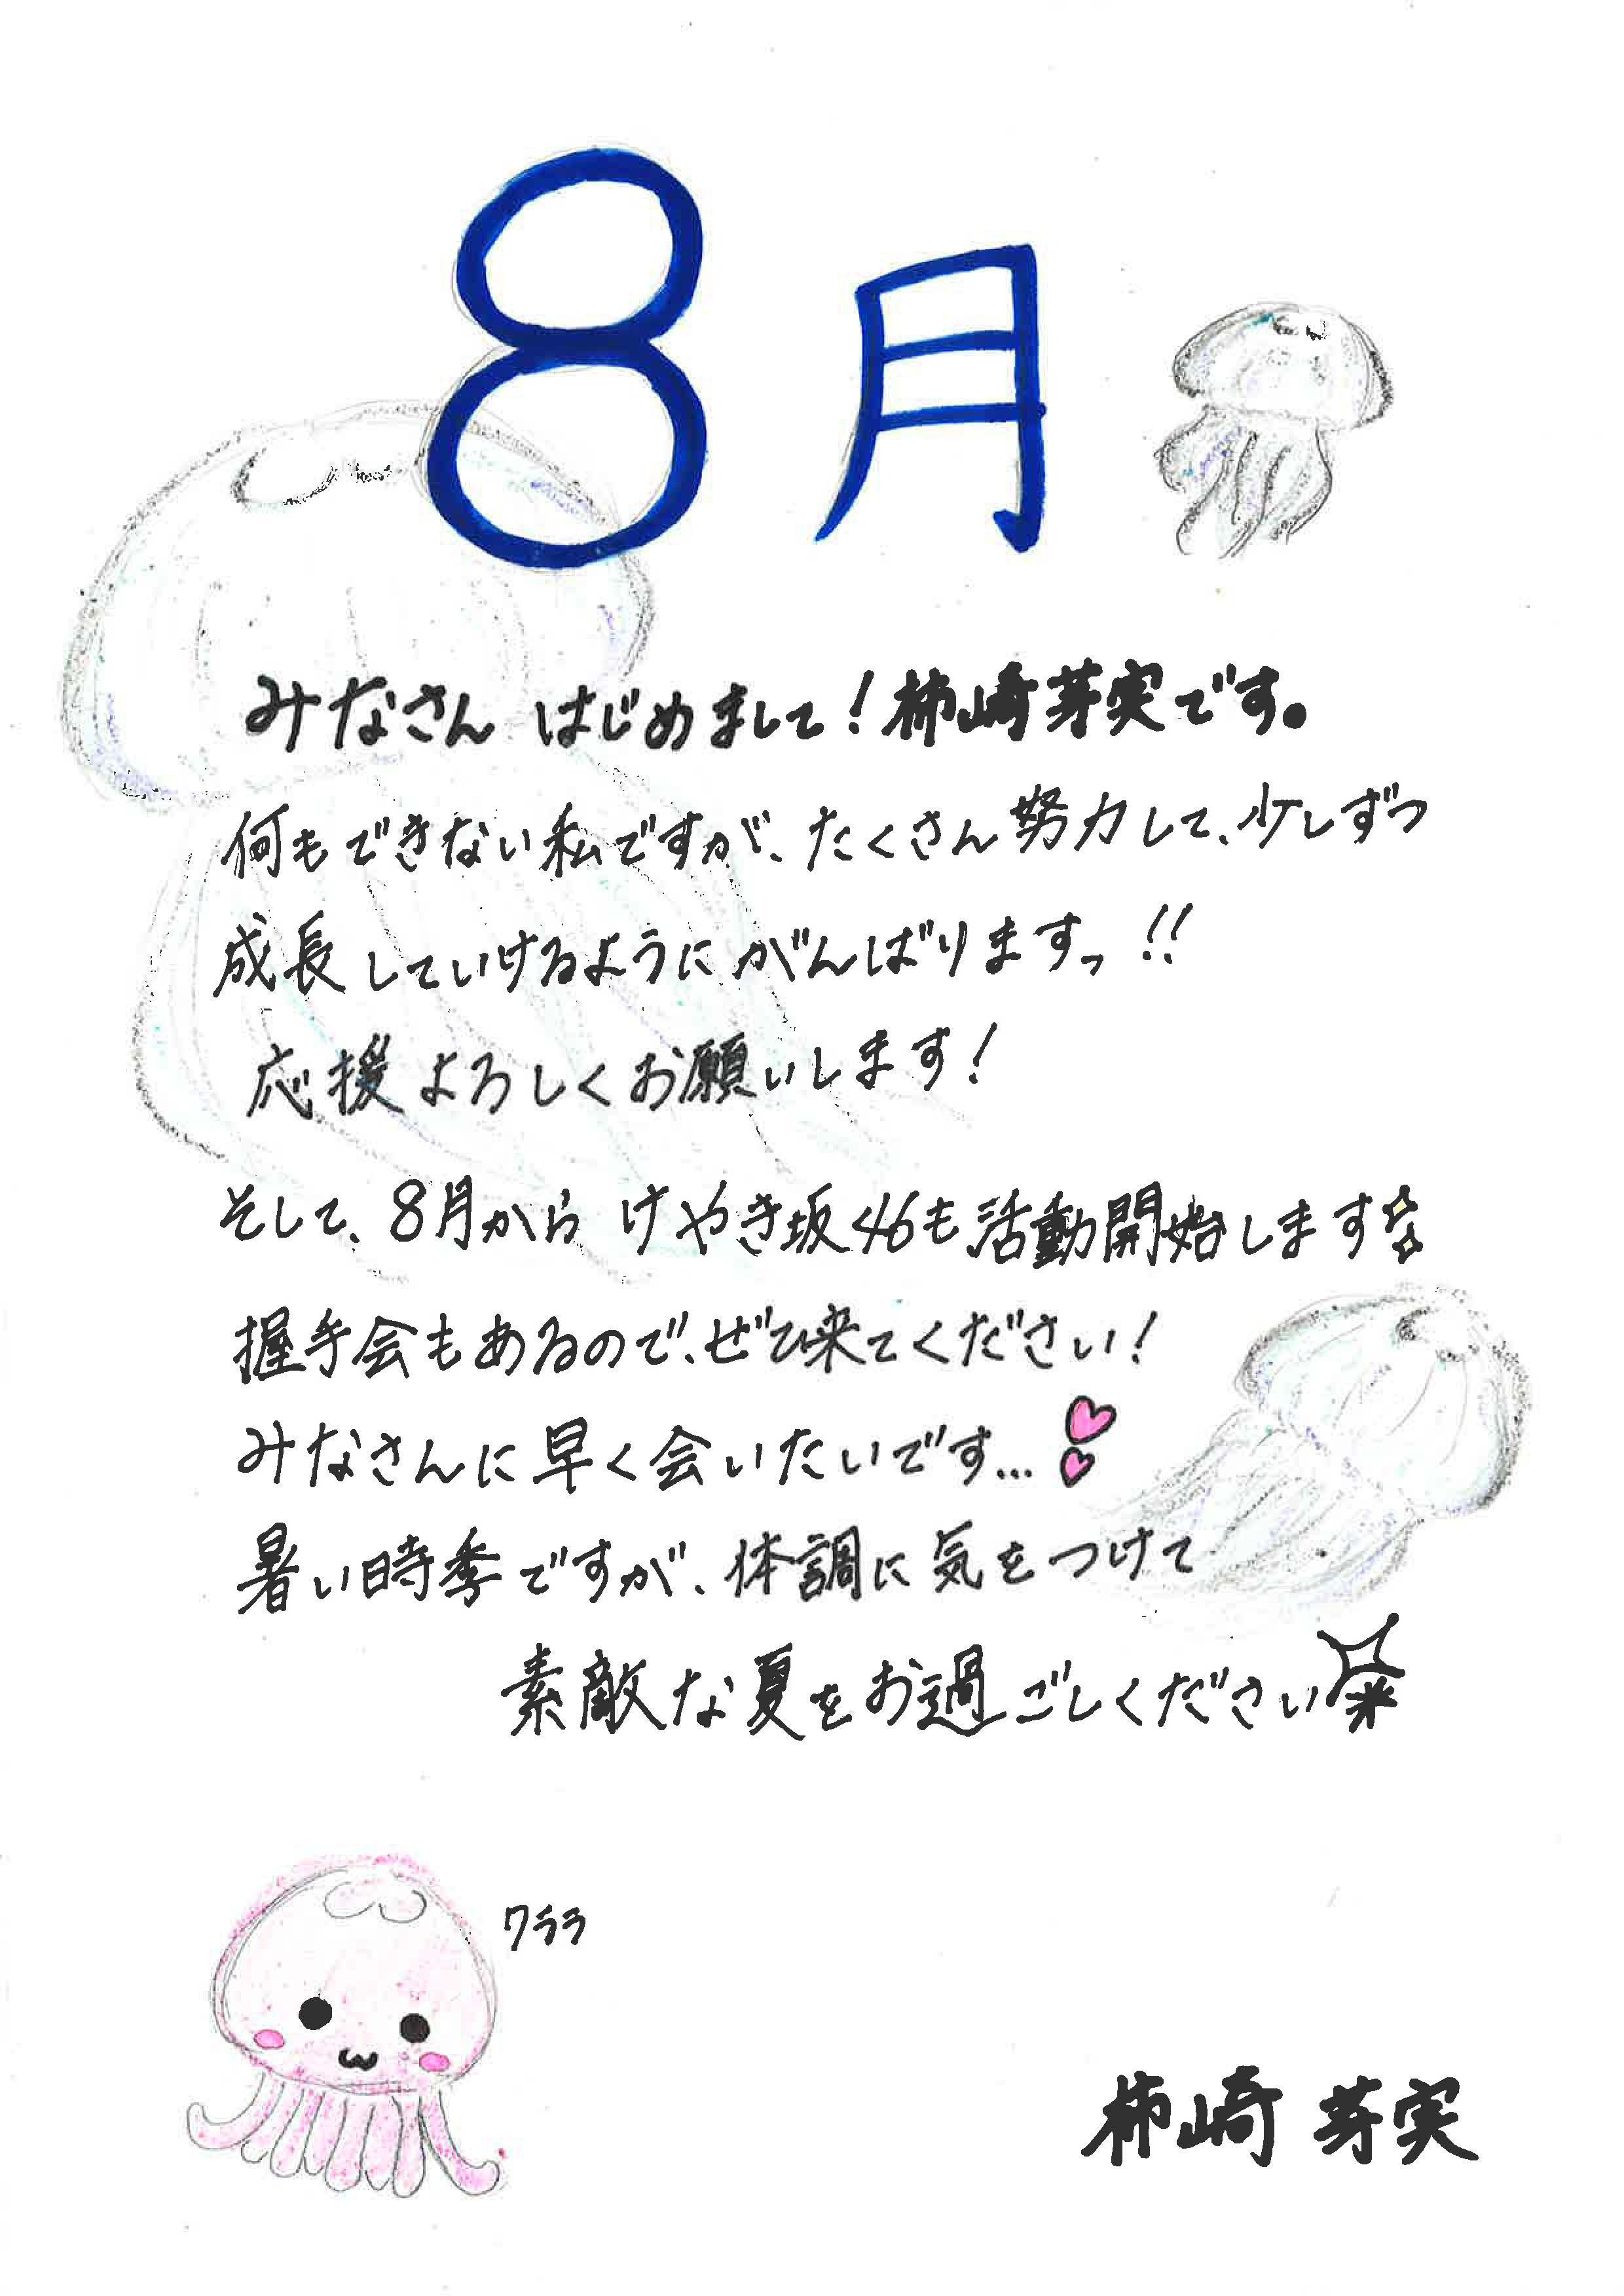 8月
みなさん はじめまして!柿崎芽実です。
何もできない私ですが、たくさん努力して、少しずつ
成長していけるようにがんばりますっ!!
応援よろしくお願いします!
そして、8月から けやき坂46も活動開始します
握手会もあるので、ぜひ来てください!
みなさんに早く会いたいです...
暑い時季ですが、体調に気をつけて
素敵な夏をお過ごしください
クララ
柿崎 芽実